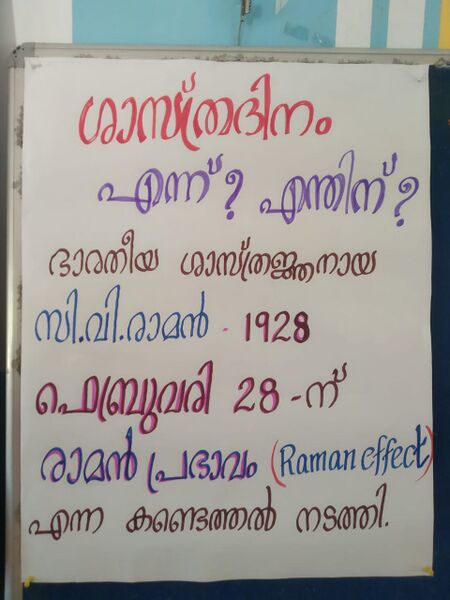 ശാസ്ത്രദിനം
എന്ന്? എന്തിന്?
ഭാരതീയ ശാസ്ത്രജ്ഞനായ
സി.വി.രാമൻ - 1928
ഫെബ്രുവരി 28 -ന്
രാമൻ പ്രഭാവം (Raman effect)
എന്ന കണ്ടെത്തൽ നടത്തി.